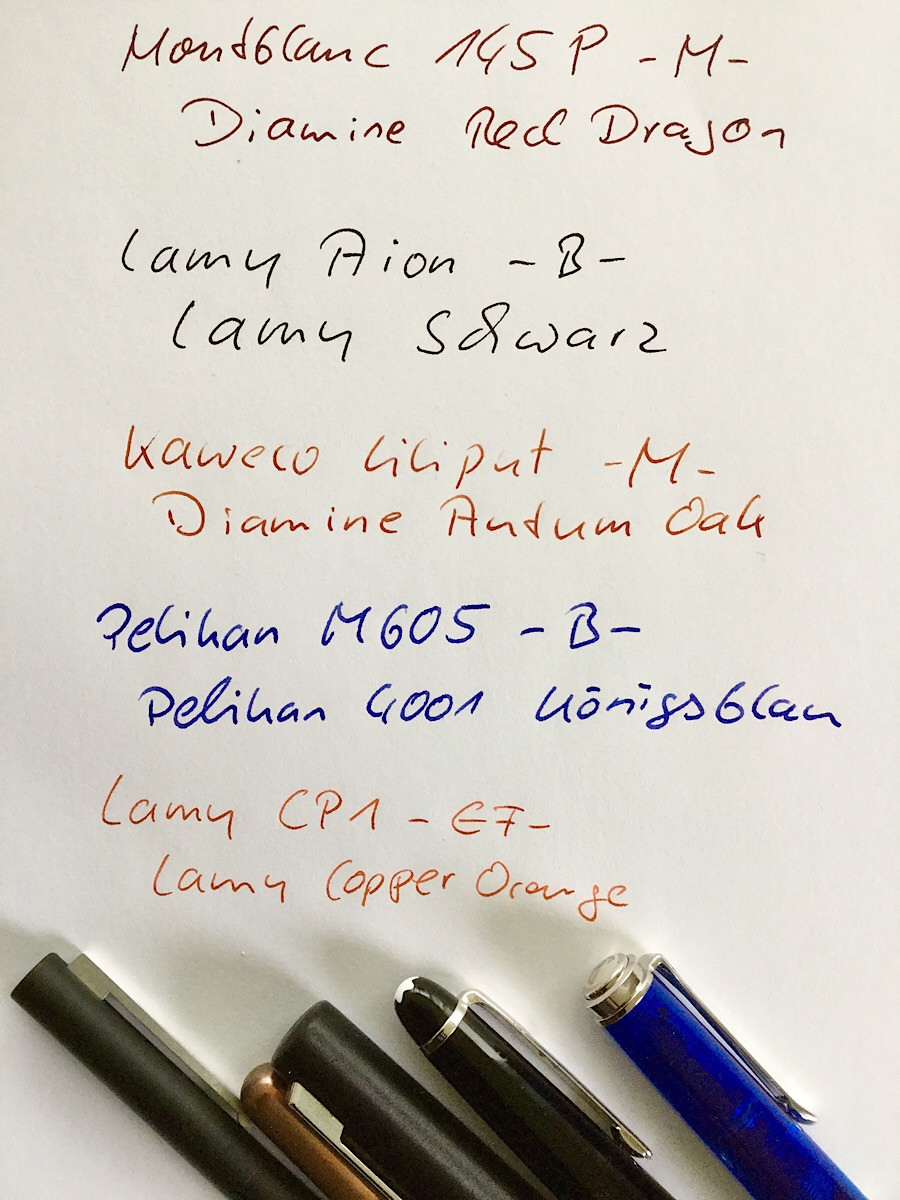 Montblanc 145 P -M-
Diamine Red Dragon
Lamy Aion -B-
Lamy Schwarz
Kaweco Liliput -M-
Diamine Autum Oak
Pelikan M605 -B-
Pelikan 4001 Königsblau
Lamy CP1 -EF-
Lamy Copper Orange